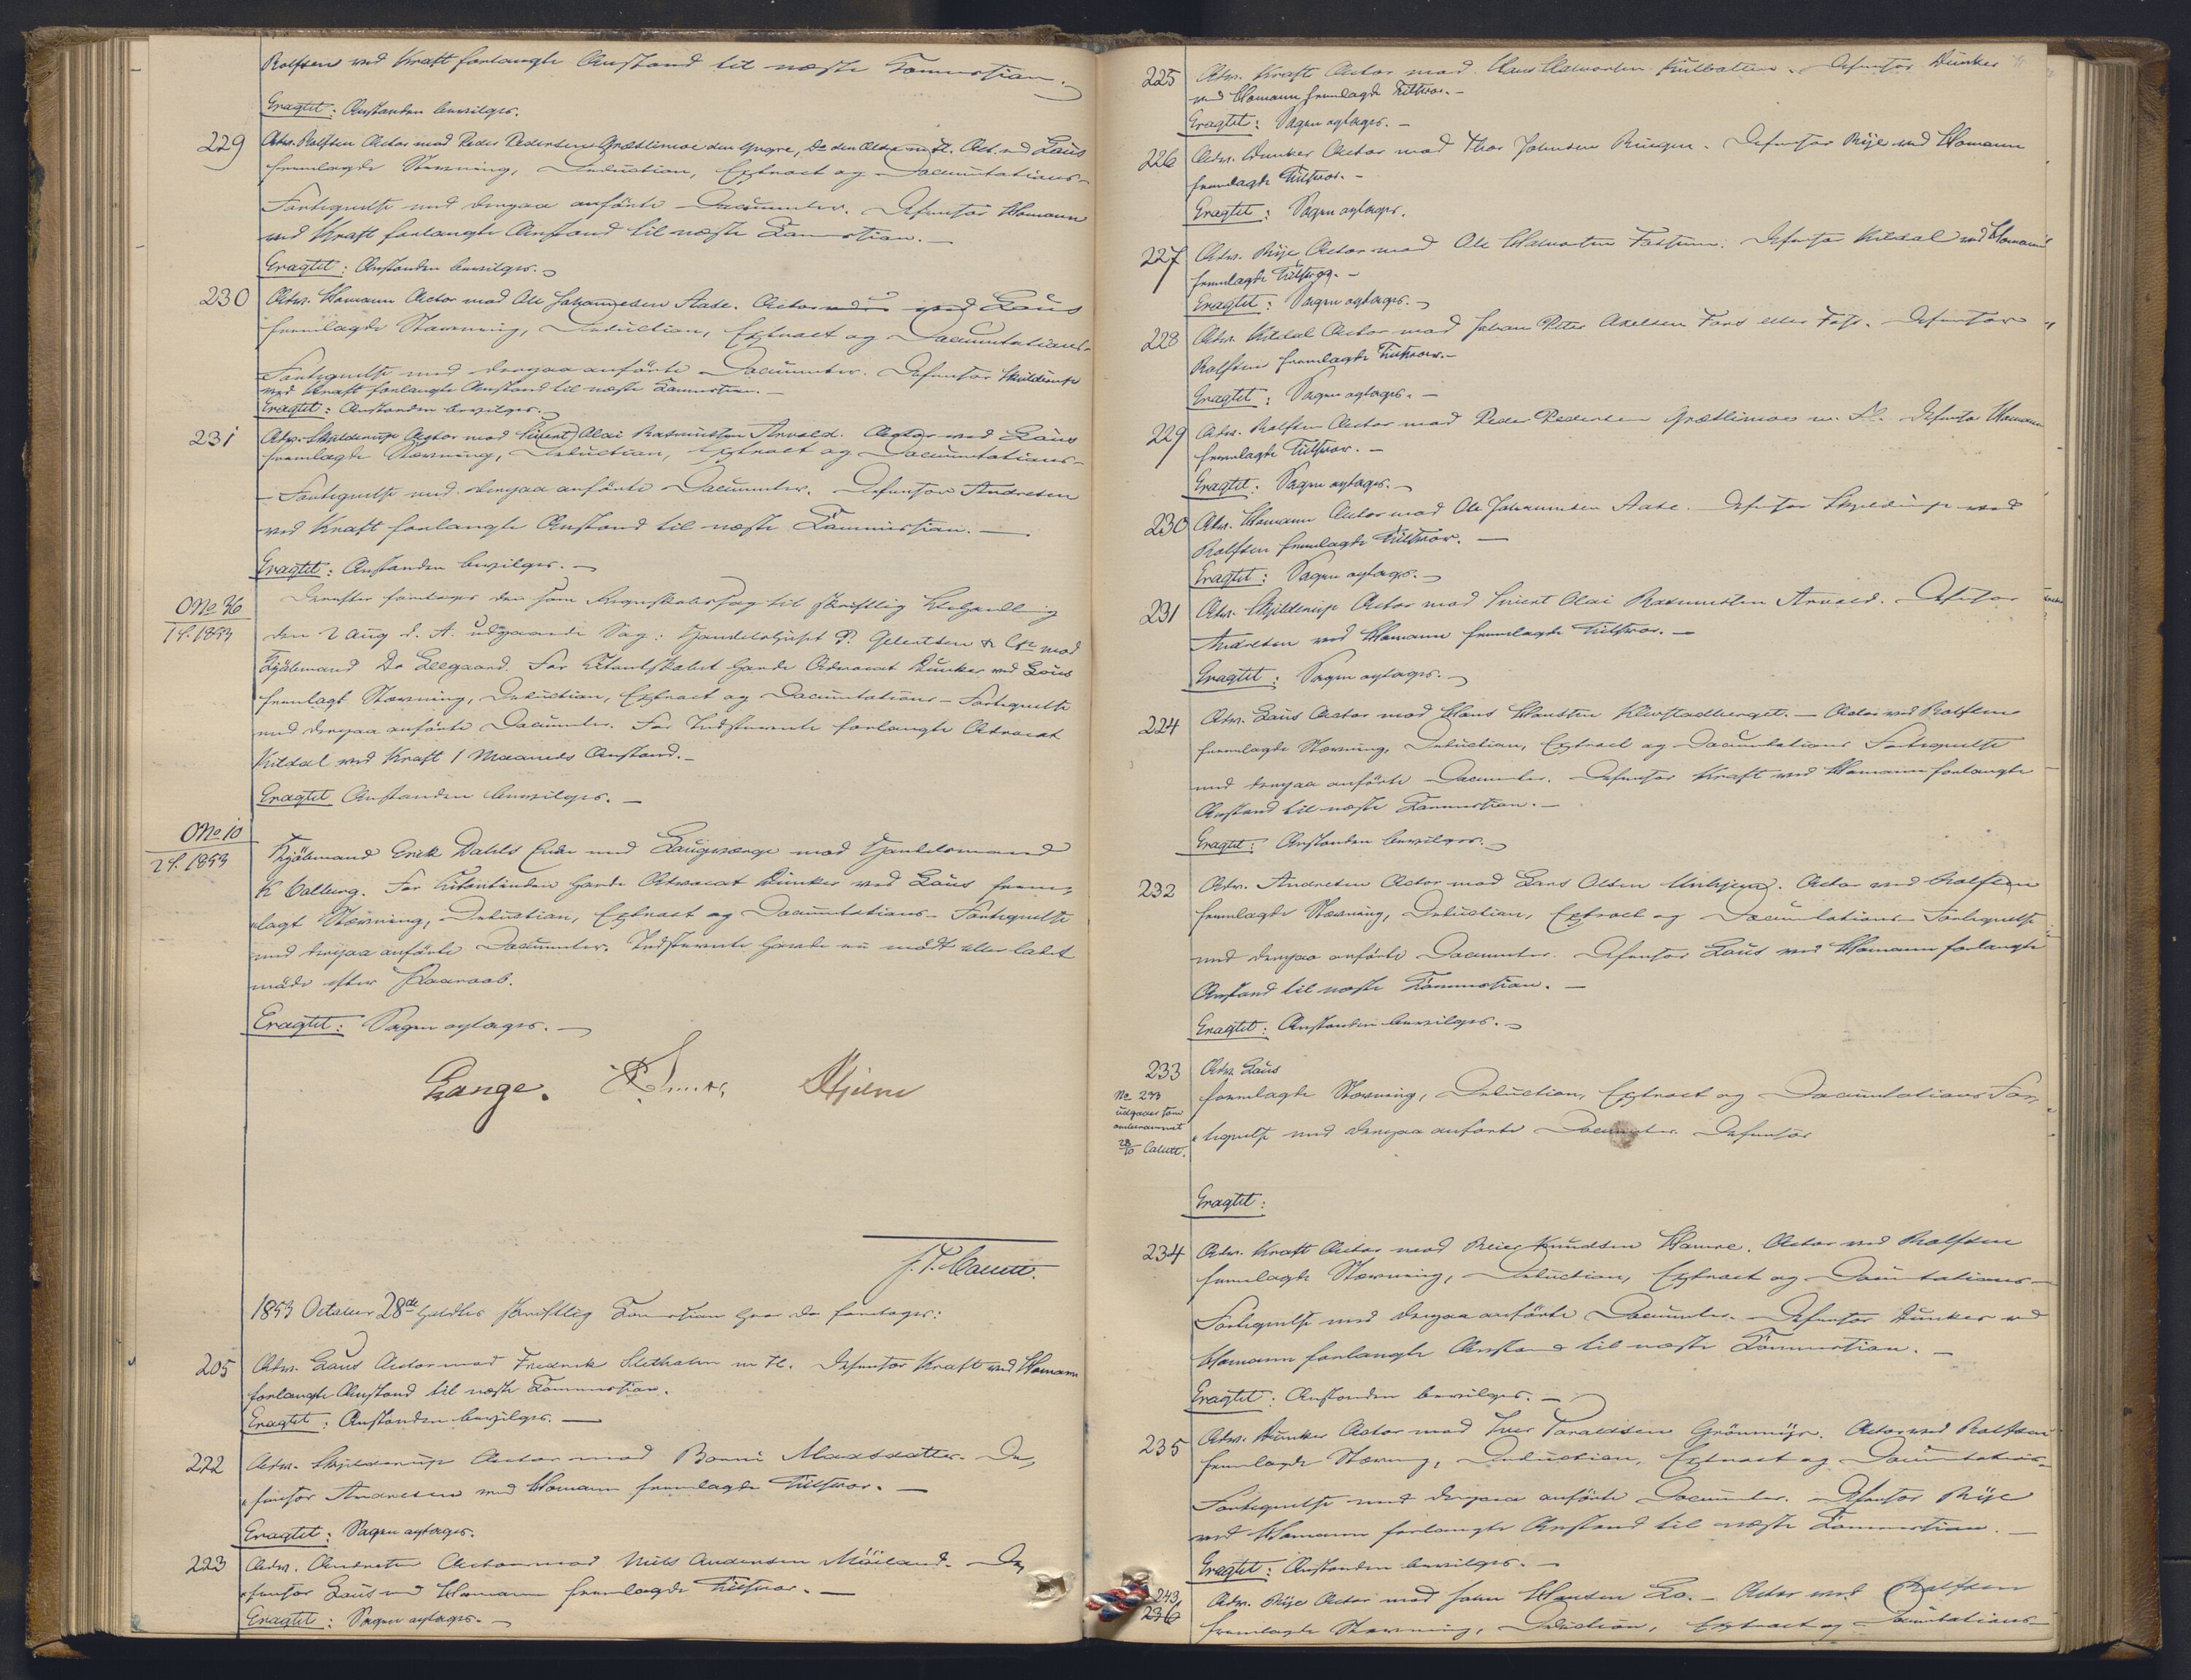 Rolfsen ved Kraft forlangte Anstand til næste Commission.
Eragtet: Anstanden bevilges.
229 Adv. Rolfsen Actor mod Peder Pedersen Grætlimoe den yngre, Do den Ældre m. fl. Act. ved Laus
fremlagde Stævning, Deduction, Extract og Documentations-
Fortegnelse med derpaa anførte Documenter. Defensor Homann
ved Kraft forlangte Anstand til næste Commission. —
Eragtet: Anstanden bevilges. —
230 Adv. Homann Actor mod Ole Johannesen Aade. Actor ved Laus
fremlagde Stævning, Deduction, Extract og Documentations-
Fortegnelse med derpaa anførte Documenter. Defensor Skjelderup
ved Kraft forlangte Anstand til næste Commission. —
Eragtet: Anstanden bevilges. —
231 Adv. Skjelderup Actor mod Sivert Olai Rasmussen Arvold. Actor ved Laus
fremlagde Stævning, Deduction, Extract og Documentations-
Fortegnelse med derpaa anførte Documenter. Defensor Andresen
ved Kraft forlangte Anstand til næste Commission. —
Eragtet: Anstanden bevilges. —
No 36
1 S. 1853
Derefter foretages den som Regnskabssag til skriftlig Behandling
den 2 Aug d. A. udgaaende Sag: Handelshuset P. Gelertsen & Co mod
Kjøbmand Do Leegaard. For Citantskabet havde Advocat Dunker ved Laus
fremlagt Stævning, Deduction, Extract og Documentations-Fortegnelse
med derpaa anførte Documenter. For Indstevnte forlangte Advocat
Kildal ved Kraft 1 Maaneds Anstand. —
Eragtet Anstanden bevilges. —
No 10
2 S. 1853
Kjøbmand Erik Dahls Enke med Laugværge mod Handelsmand
K Valberg. For Citantinden havde Advocat Dunker ved Laus frem-
lagt Stævning, Deduction, Extract og Documentations-Fortegnelse
med derpaa anførte Documenter. Indstevnte havde ei mødt eller ladet
møde efter Paaraab.
Eragtet: Sagen optages. —
Lange. Hjelm
1853 October 28de holdtes skriftlig Commission hvor da foretoges:
205 Adv. Laus Actor mod Fredrik Sletholm m. fl. Defensor Kraft ved Homann
forlangte Anstand til næste Commission.
Eragtet: Anstanden bevilges. —
222 Adv. Skjelderup Actor mod Berrit Maxsdatter. De-
fensor Andresen ved Homann fremlagde Tilsvar. —
Eragtet: Sagen optages.
223 Adv. Andresen Actor mod Niels Andersen Möiland. De-
fensor Laus ved Homann fremlagde Tilsvar. —
Eragtet: Sagen optages. —
225 Adv. Kraft Actor mod Defensor Dunker
ved Homann fremlagde Tilsvar. —
Eragtet: Sagen optages. —
226 Adv. Dunker Actor mod Thor Johnsen Ruugen. Defensor Rije ved Homann
fremlagde Tilsvar. —
Eragtet: Sagen optages.
227 Adv. Rije Actor mod Ole Halvorsen Fossum. Defensor Kildal ved Homann
fremlagde Tilsvar. —
Eragtet: Sagen optages. —
228 Adv. Kildal Actor mod Johan Peter Axelsen Fors eller Foss. Defensor
Rolfsen fremlagde Tilsvar. —
Eragtet: Sagen optages. —
229 Adv. Rolfsen Actor mod Peder Pedersen Grætlimoe m. fl. Defensor Homann
fremlagde Tilsvar. —
Eragtet: Sagen optages. —
230 Adv. Homann Actor mod Ole Johannesen Aade. Defensor Skjelderup ved
Rolfsen fremlagde Tilsvar. —
Eragtet: Sagen optages. —
231 Adv. Skjelderup Actor mod Sivert Olai Rasmussen Arvold. Defensor
Andresen ved Homann fremlagde Tilsvar. —
Eragtet: Sagen optages. —
224 Adv. Laus Actor mod Hans Hansen Klevstadberget. — Actor ved Rolfsen
fremlagde Stævning, Deduction, Extract og Documentations Fortegnelse
med derpaa anførte Documenter. Defensor Kraft ved Homann forlangte
Anstand til næste Commission. —
Eragtet: Anstanden bevilges. —
232 Adv. Andresen Actor mod Lars Olsen Actor ved Rolfsen
fremlagde Stævning, Deduction, Extract og Documentations Fortegnelse
med derpaa anførte Documenter. Defensor Laus ved Homann forlangte
Anstand til næste Commission. —
Eragtet: Anstanden bevilges. —
233 Adv. Laus
No 233
udgaaer som
28/10
fremlagde Stævning, Deduction, Extract og Documentations For-
tegnelse med derpaa anførte Documenter. Defensor
Eragtet:
234 Adv. Kraft Actor mod Reier Knudsen Hamre. Actor ved Rolfsen
fremlagde Stævning, Deduction, Extract og Documentations-
Fortegnelse med derpaa anførte Documenter. Defensor Dunker ved
Homann forlangte Anstand til næste Commission. —
Eragtet: Anstanden bevilges. —
235 Adv. Dunker Actor mod Iver Taraldsen Grönmyr. Actor ved Rolfsen
fremlagde Stævning, Deduction, Extract og Documentations-
Fortegnelse med derpaa anførte Documenter. Defensor Rije
ved Homann forlangte Anstand til næste Commission. —
Eragtet: Anstanden bevilges. —
243
236 Adv. Rije Actor mod John Hansen Lo. — Actor ved Rolfsen
fremlagde Stævning, Deduction, Extract og Documentations-